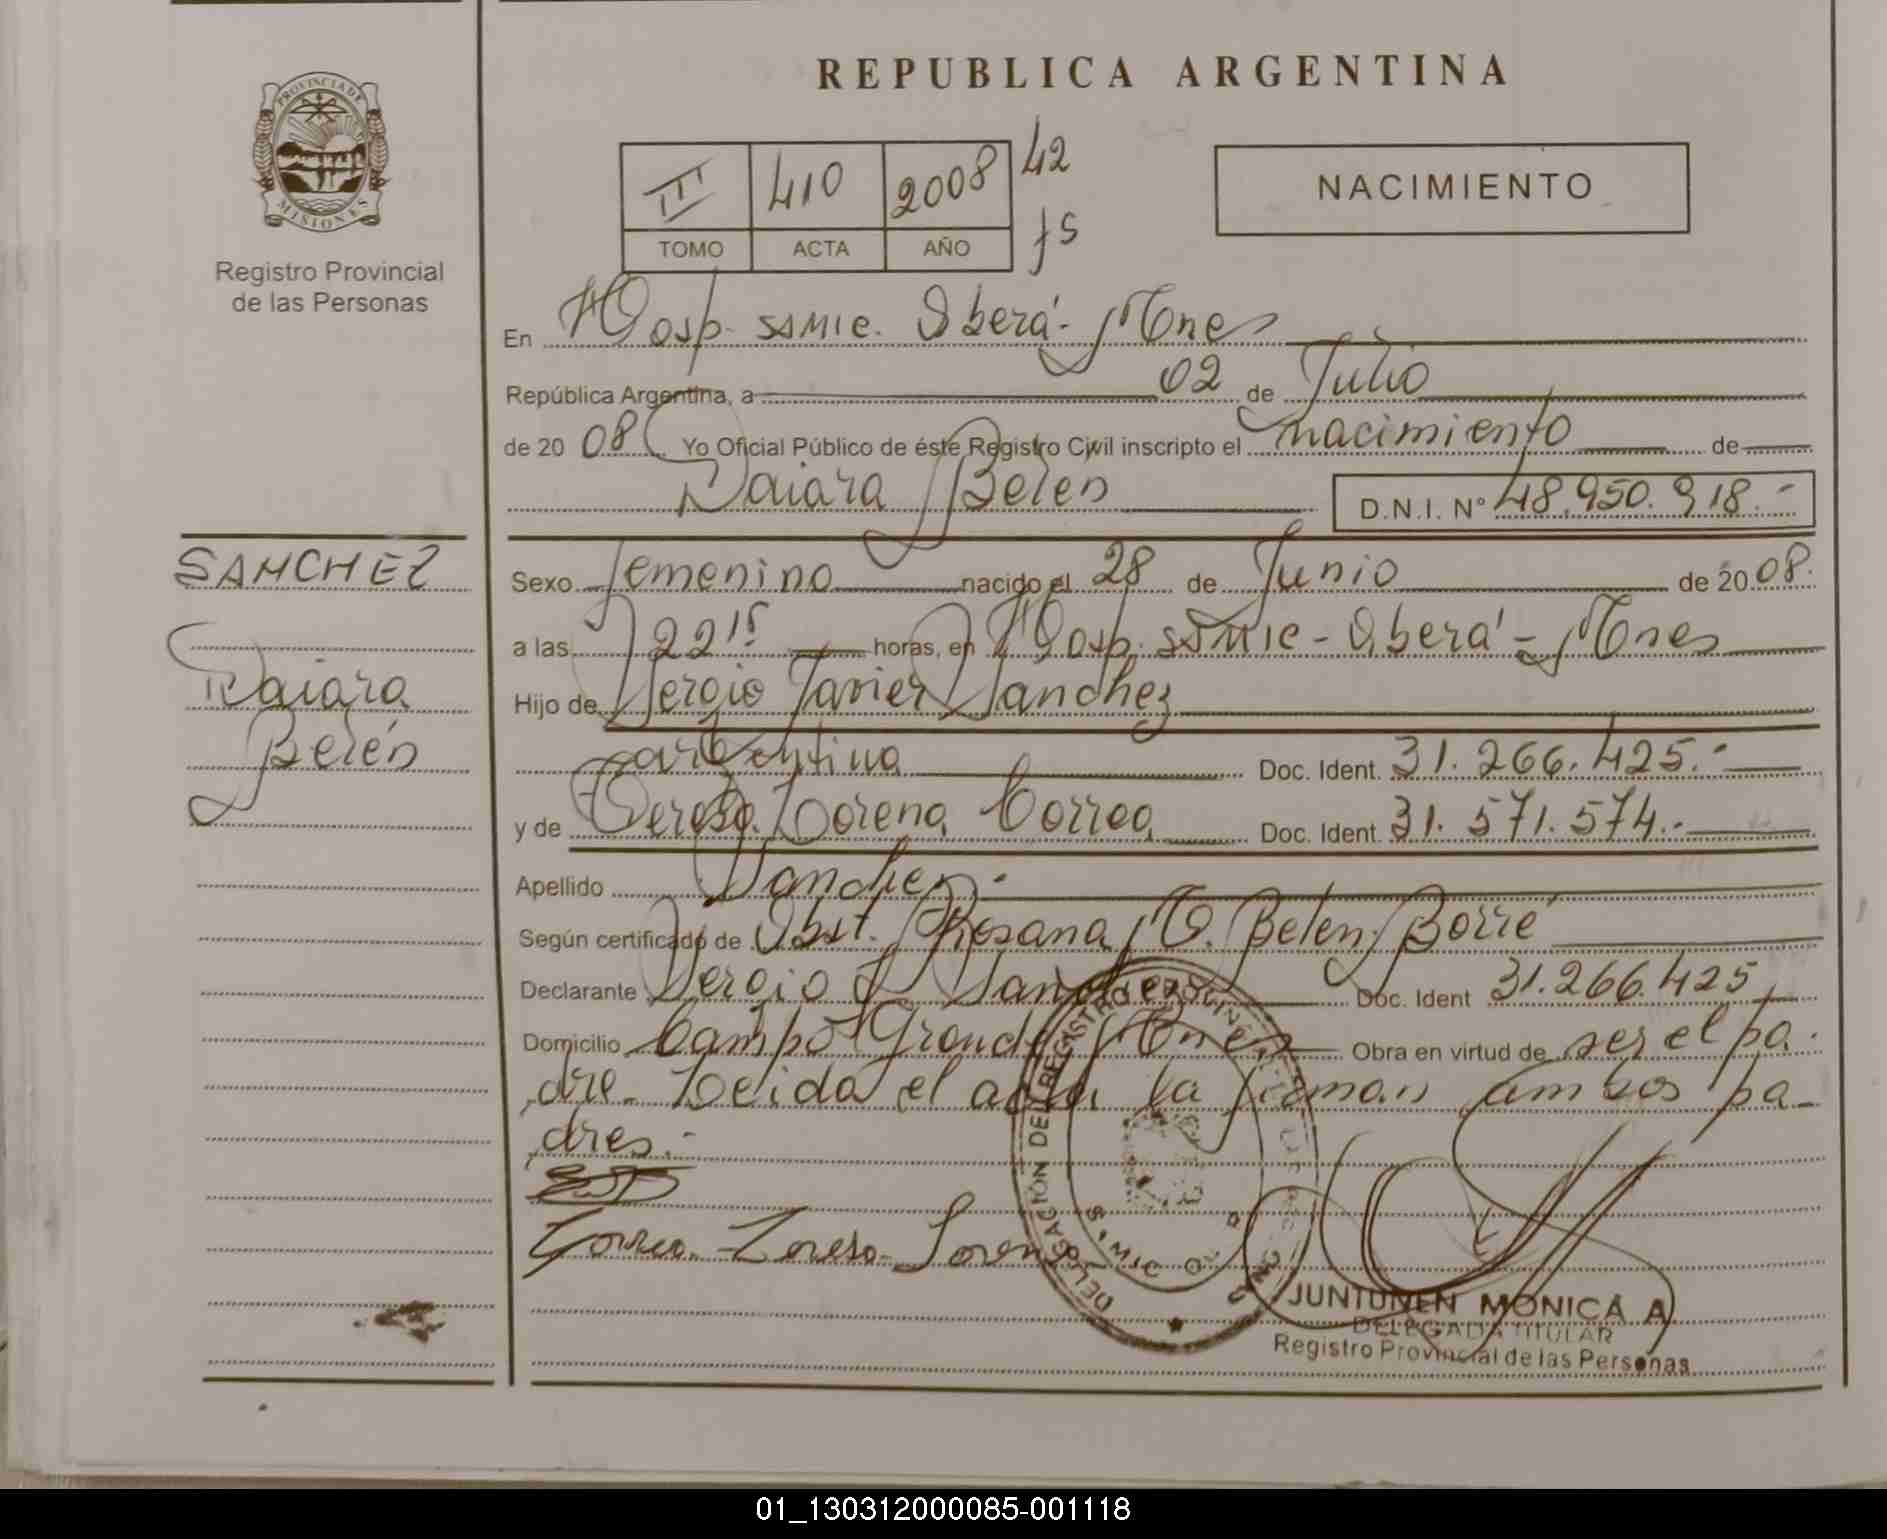 PROVINCIA DE
MISIONES
Registro Provincial
de las Personas
SANCHEZ
Daiara
Belén
REPUBLICA ARGENTINA
III 410 2008 42
TOMO ACTA AÑO fs
NACIMIENTO
En Hosp. SAMIC. Oberá - Mnes
República Argentina, a 02 de Julio
de 20 08 Yo Oficial Público de éste Registro Civil inscripto el nacimiento de
Daiara Belén D.N.I. Nº 48.950.918.-
Sexo femenino nacido el 28 de Junio de 20 08.
a las 22 15 horas, en Hosp. SAMIC - Oberá - Mnes
Hijo de Sergio Javier Sanchez
argentina Doc. Ident. 31.266.425.-
y de Teresa Lorena Correa Doc. Ident. 31.571.574.-
Apellido Sanchez.-
Según certificado de Obst. Rosana M. Belen Borré
Declarante Sergio J Sanchez Doc. Ident 31.266.425
Domicilio Campo Grande Mnes Obra en virtud de ser el pa-
dre. Leida el acta la firman ambos pa-
dres.-
Correa Teresa Lorena
DELEGACIÓN DEL REGISTRO PROVINCIAL
JUNTUNEN MONICA A
DELEGADA TITULAR
Registro Provincial de las Personas
01_130312000085-001118